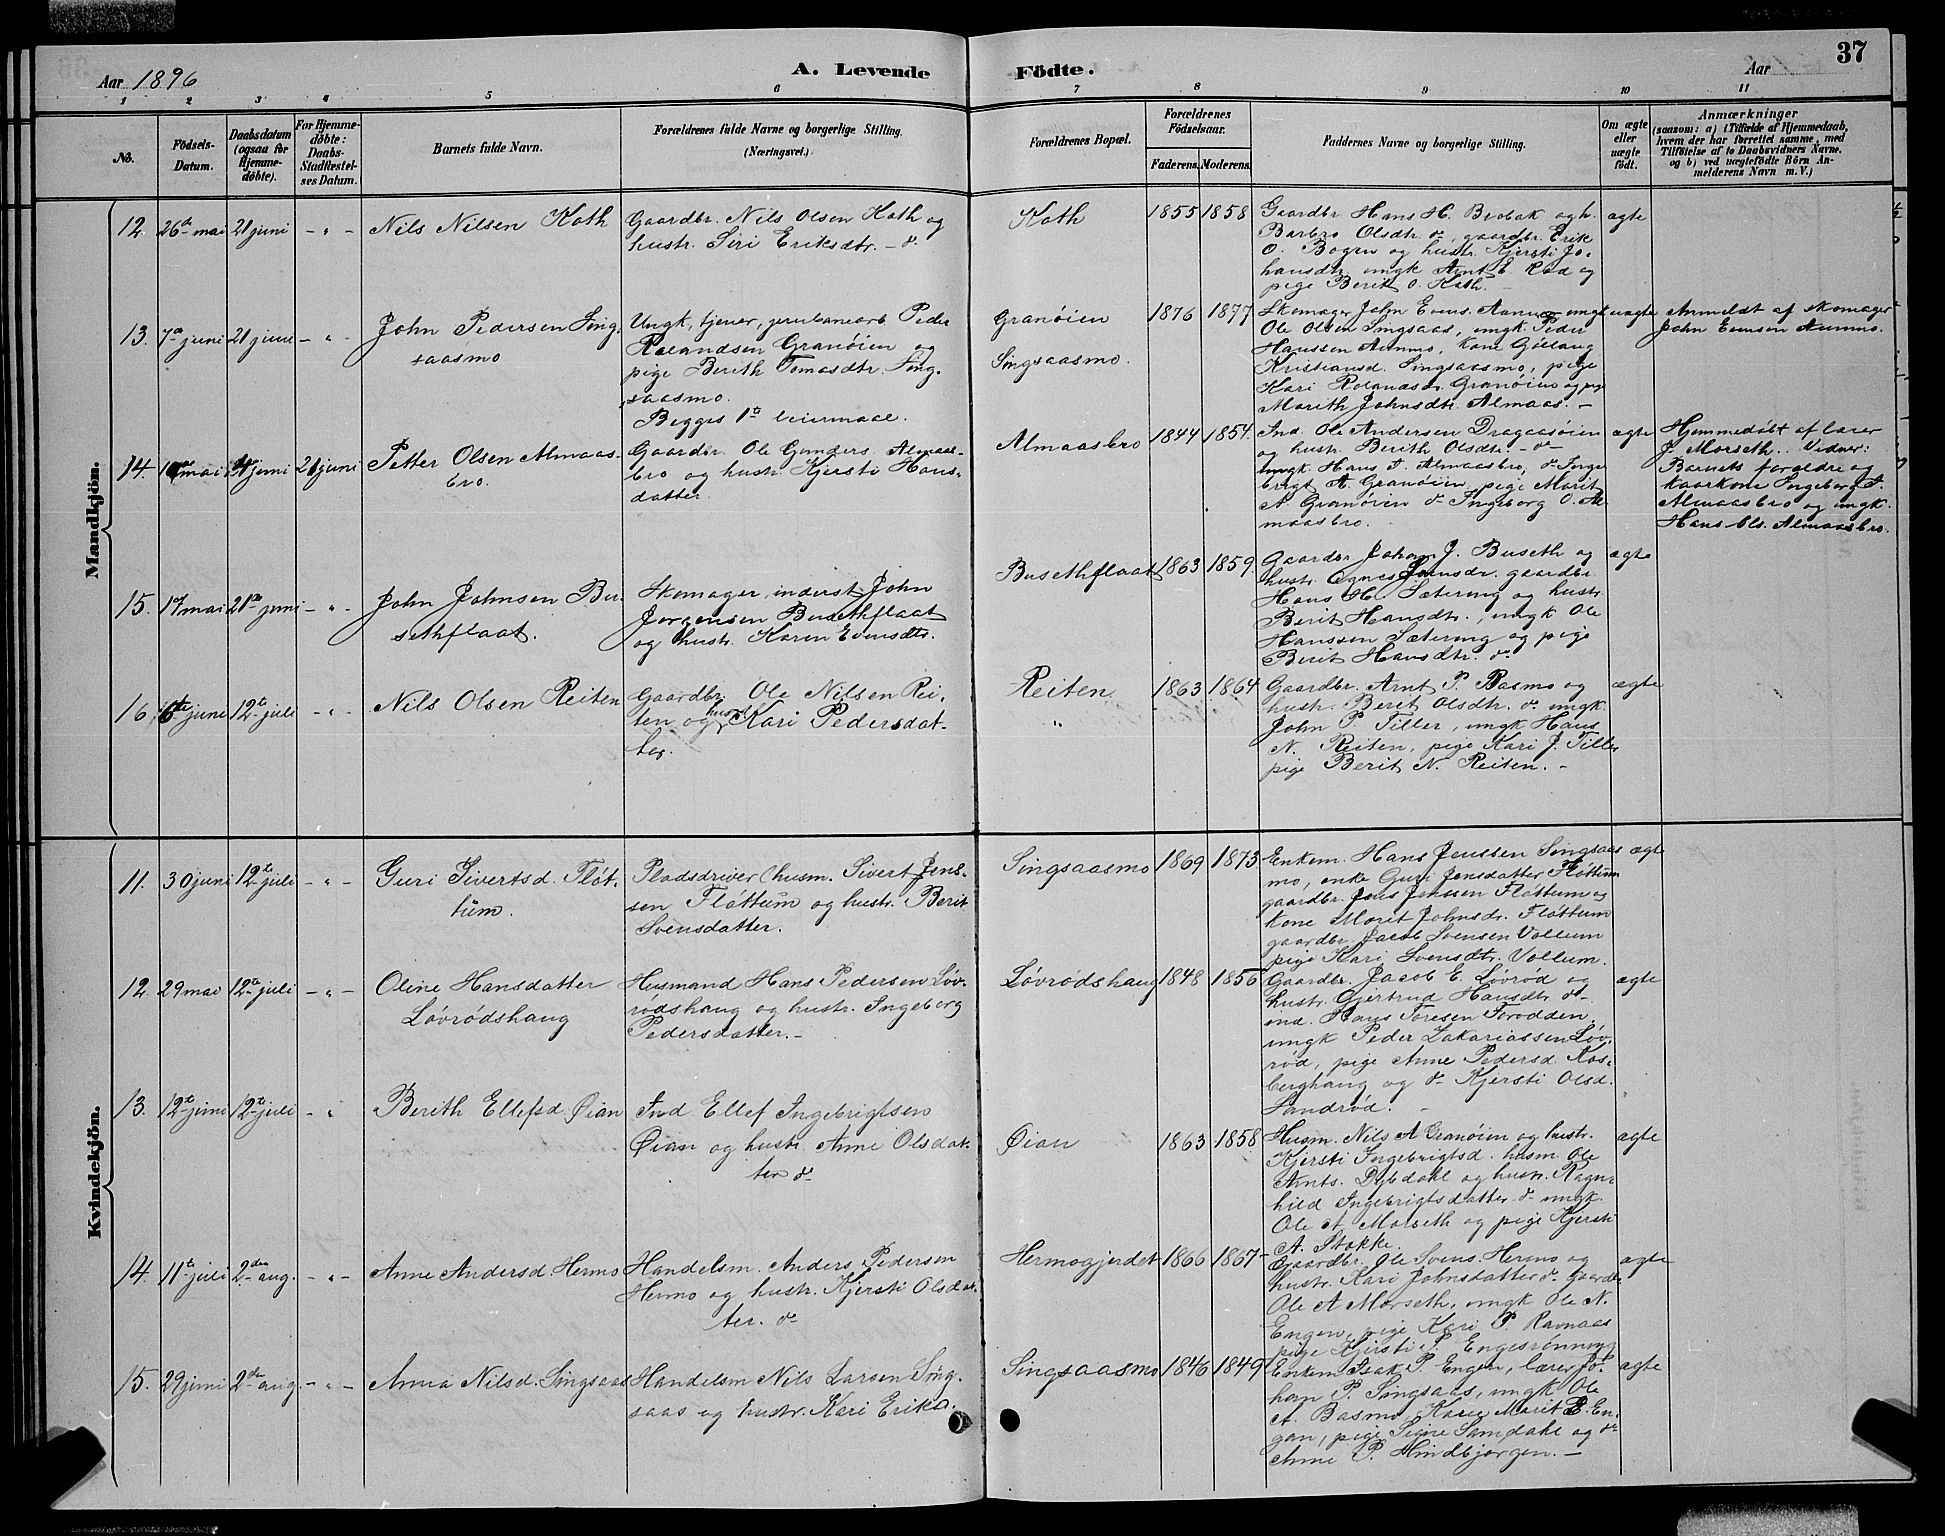 37
Aar 1896
A. Levende
Födte.
Aar
1 2 3 4 5 6 7 8 9 10 11
No.
Födsels-
Datum.
Daabsdatum
(ogsaa for
Hjemme-
døbte).
For Hjemme-
døbte:
Daabs-
Stadfæstel-
ses Datum.
Barnets fulde Navn.
Forældrenes fulde Navne og borgerlige Stilling.
(Næringsvei.)
Forældrenes Bopæl.
Forældrenes
Födselsaar.
Faderens. Moderens.
Faddernes Navne og borgerlige Stilling.
Om ægte
eller
uægte
født.
Anmærkninger
(saasom: a) i Tilfælde af Hjemmedaab,
hvem der har forrettet samme, med
Tilføielse af to Daabsvidners Navne,
og b) ved uægtefødte Børn An-
melderens Navn m. V.)
Mandkjön.
12. 26de mai 21 juni - " - Nils Nilsen Koth
Gaardbr. Nils Olsen Koth og
hustr. Siri Eriksdtr. - d.
Koth 1855 1858
Gaardbr Hans H. Brobak og h.
Barbro Olsdtr d., gaardbr. Erik
O. Bogen og hustr. Kjersti Jo-
hansdtr. ungk Arnt E. Rød og
pige Berit O. Koth.
ægte
13. 7de juni 21 juni - " - John Pedersen Sing-
saasmo
Ungk, tjener, jernbanearb. Peder
Rolandsen Granøien og
pige Berith Tomasdtr. Sing-
saasmo.
Begges 1ste leiermaal.
Granöien
Singsaasmo.
1876 1877
Skomager John Evens. Aunmo, ungk
Ole Olsen Singsaas, ungk Peder
Hanssen Aunmo, kone Gølaug
Kristiansd. Singsaasmo, pige
Kari Rolandsdr. Granöien og pige
Marith Johnsdtr. Almaas. -
uægte
Anmeldt af skomager
John Evensen Aunmo.
14. mai juni 21 juni Petter Olsen Almaas-
bro.
Gaardbr. Ole Gunders. Almaas-
bro og hustr. Kjersti Hans-
datter.
Almaasbro 1844 1854.
Ind. Ole Andersen Dragaasøien
og hustr. Berith Olsdtr. - d-
ungk. Hans T. Almaasbro, d. Inge-
brigt A. Granøien, pige Marit
A. Granöien d- Ingeborg O. Al-
maasbro.
ægte
Hjemmedöbt af lærer
J. Morseth. Vidner:
Barnets forældre og
kaarkone Ingeborg T.
Almaasbro og ungk.
Hans Ols. Almaasbro.
15. 17 mai 21de juni - " - John Johnsen Bu-
sethflaat.
Skomager, inderst John
Jorgensen Busethflaat
og hustr. Karen Evensdtr.
Busethflaat 1863 1859
Gaardbr Johan J. Buseth og
hustr. Agnes Jensdr. gaardbr.
Hans H. Sætering og hustr.
Berit Hansdtr., ungk Ole
Hanssen Sætering og pige
Berit Hansdtr. d-
ægte
16. 6te juni 12te juli - " - Nils Olsen Reiten
Gaardbr. Ole Nilsen Rei-
ten og hustr. Kari Pedersdat-
ter.
Reiten
"
1863 1864
Gaardbr. Arnt P. Basmo og
hustr. Beret Olsdtr. d- ungk.
John P. Tiller, ungk Hans
N. Reiten, pige Kari J. Tiller
pige Berit N. Reiten. -
ægte
Kvindekjön.
11. 30 juni 12te juli - " - Guri Sivertsd. Fløt-
tum.
Pladsdriver (husm. Sivert Jens-
sen Fløttum og hustr. Berit
Svensdatter.
Singsaasmo 1869 1873
Enkem. Hans Jenssen Singsaas-
mo, enke Guri Jensdatter Fløttum
gaardbr. Jens Jenssen Fløttum og
kone Marit Johnsdr. Fløttum
gaardbr. Jacob Svensen Vollum
pige Kari Svensdtr. Vollum.
ægte
12. 29 mai 12te juli - " - Oline Hansdatter
Løvrødshaug
Husmand Hans Pedersen Løv-
rødshaug og hustr. Ingeborg
Pedersdatter. -
Løvrødshaug 1848 1856
Gaardbr. Jacob E. Løvrød og
hustr. Gjertrud Hansdtr. d-
ind. Hans Toresen Forodden,
ungk Peder Zakariassen Løv-
rød, pige Anne Pedersd. Kos-
berghaug og d- Kjersti Olsd.
Sandrød.
ægte
13. 12te juni 12te juli - " - Berith Ellefsd. Øian
Ind. Ellef Ingebrigtsen
Øian og hustr. Anne Olsdat-
ter d-
Øian 1863 1858
Husm. Nils A Granøien og hustr.
Kjersti Ingebrigtsd. husm. Ole
Arnts. Dybdahl og hustr. Ragn-
hild Ingebrigtsdatter d- ungk.
Ole A. Morseth og pige Kjersti
A. Stokke.
ægte
14. 11te juli 2den aug. - " - Anne Andersd. Hermo
Handelsm. Anders Pedersen
Hermo og hustr. Kjersti Olsdat-
ter. d-
Hermogjerdet 1866 1867
Gaardbr. Ole Svens. Hermo og
hustr. Kari Johnsdatter d- Gaardbr
Ole A Morseth, ungk Ole N.
Engen, pige Kari P. Ramaas
pige Kjersti P. Engesrønning
ægte
15. 29 juni 2den aug. - " - Anna Nilsd. Singsaas
Handelsm Nils Larsen Sing-
saas og hustr. Kari Eriksd.
Singsaasmo 1846 1849
Enkem Isak P. Engen, lærer Jo-
han P. Singsaas, ungk Ole
A. Basmo, Kone Marit E. En-
gan, pige Signe Samdahl og d-
Anne P. Hindbjørgen. -
ægte